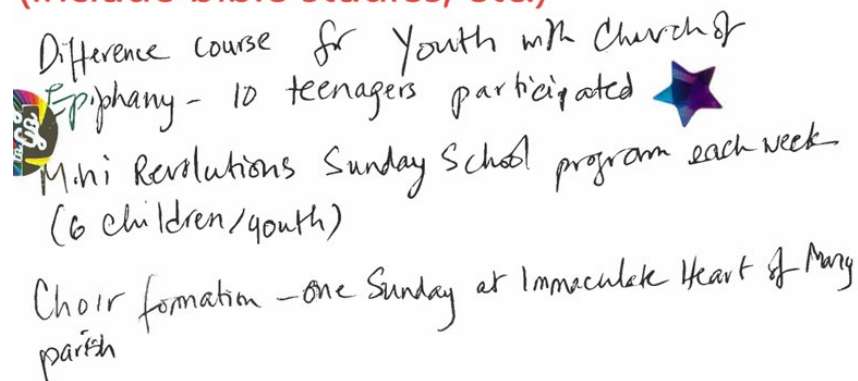 (include bible studies, etc.)
Difference course for Youth with Church of
Epiphany - 10 teenagers participated
Mini Revolutions Sunday School program each week
(6 children/youth)
Choir formation - one Sunday at Immaculate Heart of Mary
parish